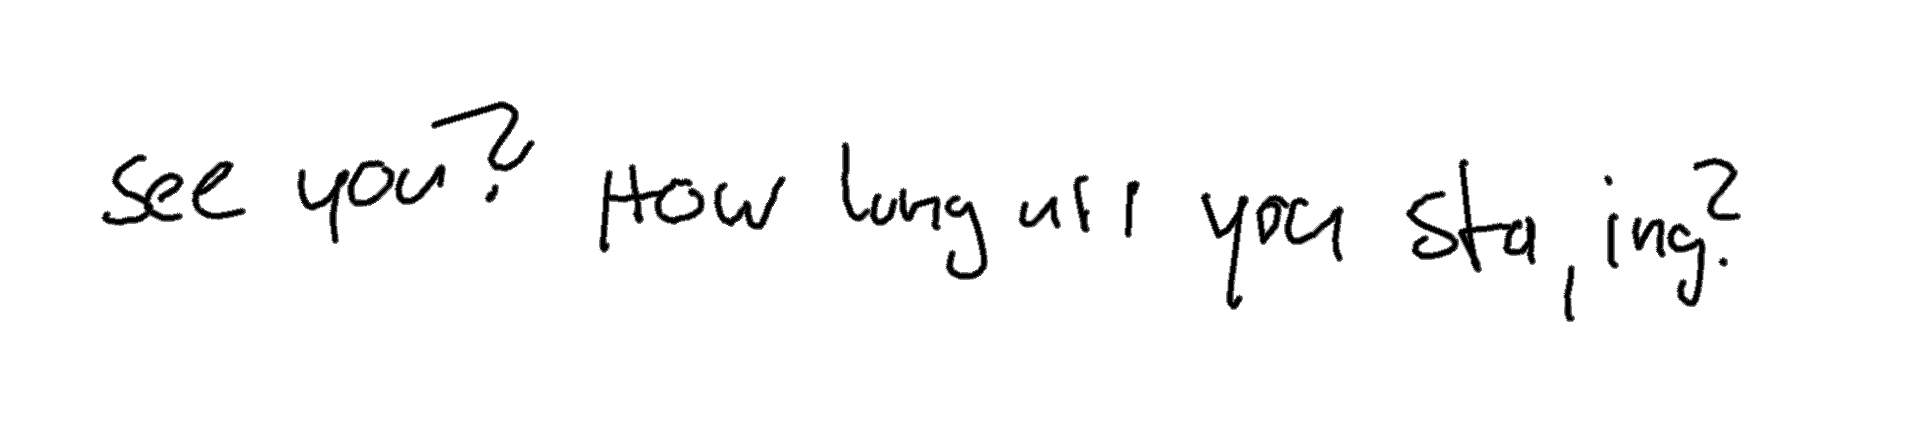 see you? How long are you staying?